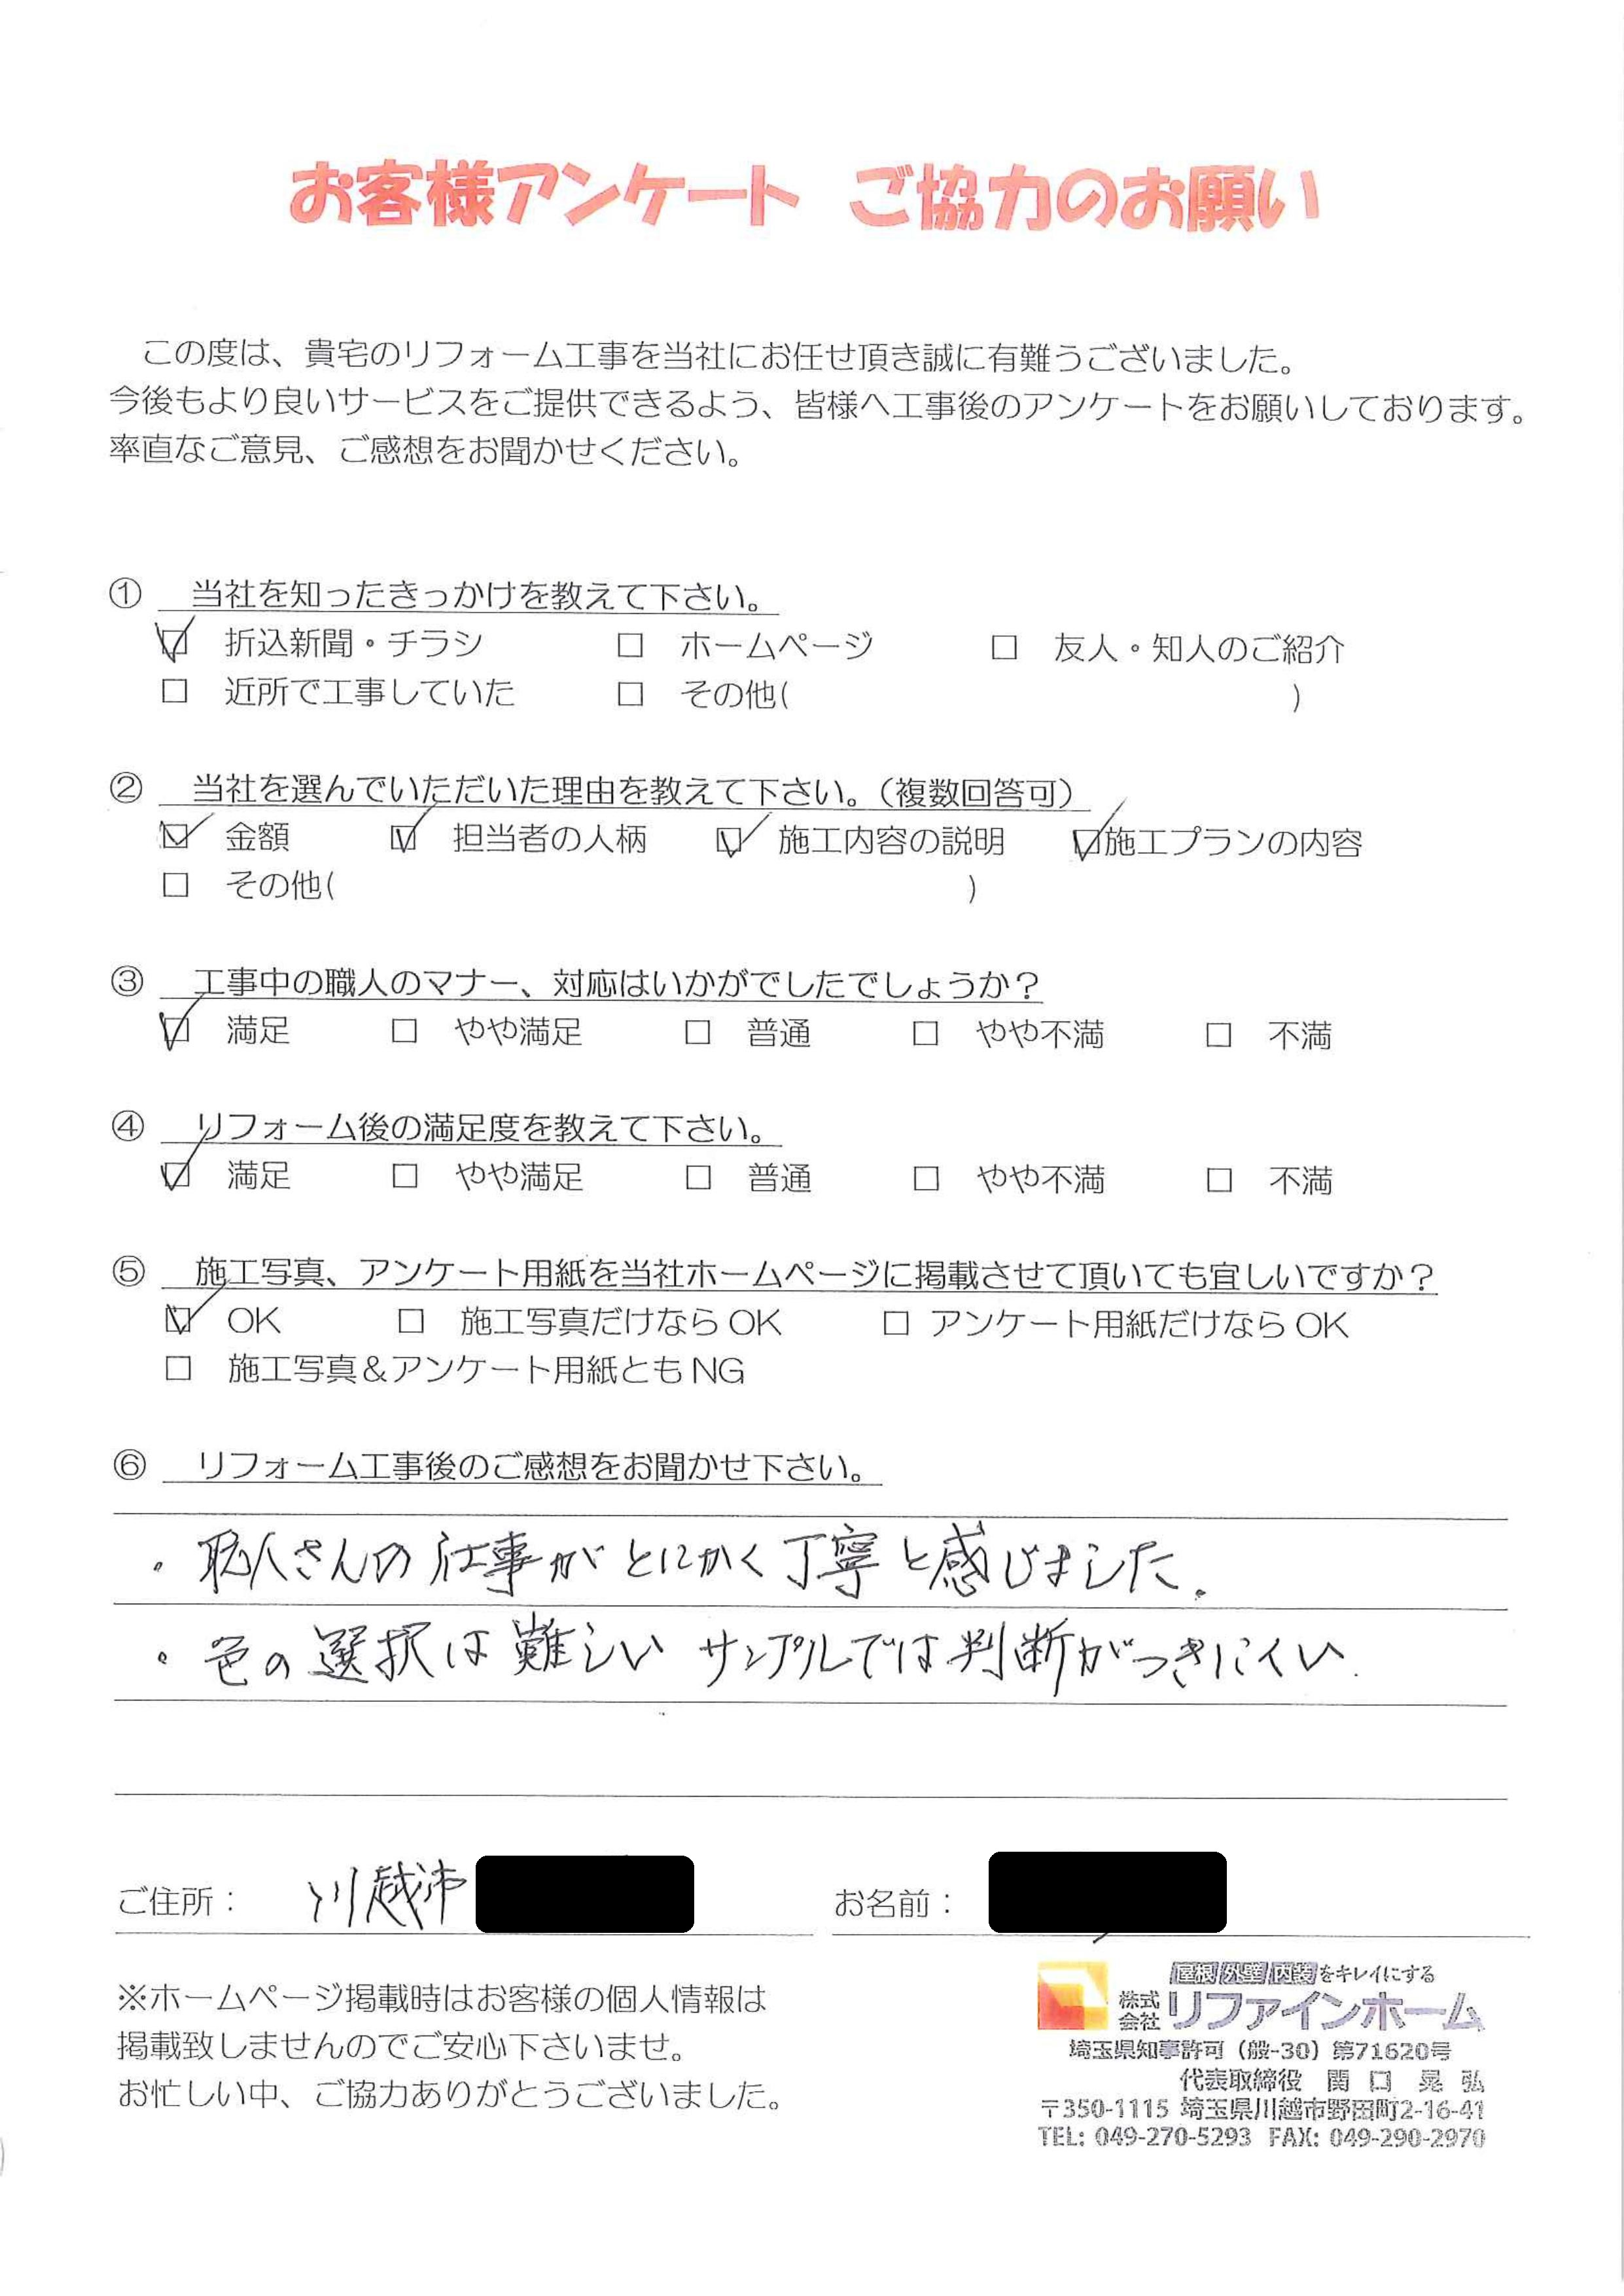 お客様アンケート ご協力のお願い
この度は、貴宅のリフォーム工事を当社にお任せ頂き誠に有難うございました。
今後もより良いサービスをご提供できるよう、皆様へ工事後のアンケートをお願いしております。
率直なご意見、ご感想をお聞かせください。
① 当社を知ったきっかけを教えて下さい。
☑ 折込新聞・チラシ □ ホームページ □ 友人・知人のご紹介
□ 近所で工事していた □ その他( )
② 当社を選んでいただいた理由を教えて下さい。（複数回答可）
☑ 金額 ☑ 担当者の人柄 ☑ 施工内容の説明 ☑ 施工プランの内容
□ その他( )
③ 工事中の職人のマナー、対応はいかがでしたでしょうか？
☑ 満足 □ やや満足 □ 普通 □ やや不満 □ 不満
④ リフォーム後の満足度を教えて下さい。
☑ 満足 □ やや満足 □ 普通 □ やや不満 □ 不満
⑤ 施工写真、アンケート用紙を当社ホームページに掲載させて頂いても宜しいですか？
☑ OK □ 施工写真だけなら OK □ アンケート用紙だけなら OK
□ 施工写真＆アンケート用紙とも NG
⑥ リフォーム工事後のご感想をお聞かせ下さい。
・職人さんの仕事がとにかく丁寧と感じました。
・色の選択は難しい サンプルでは判断がつきにくい.
ご住所： 川越市 お名前：
※ホームページ掲載時はお客様の個人情報は
掲載致しませんのでご安心下さいませ。
お忙しい中、ご協力ありがとうございました。
屋根 外壁 内装をキレイにする
株式会社 リファインホーム
埼玉県知事許可（般-30）第71620号
代表取締役 関口 晃弘
〒350-1115 埼玉県川越市野田町2-16-41
TEL: 049-270-5293 FAX: 049-290-2970